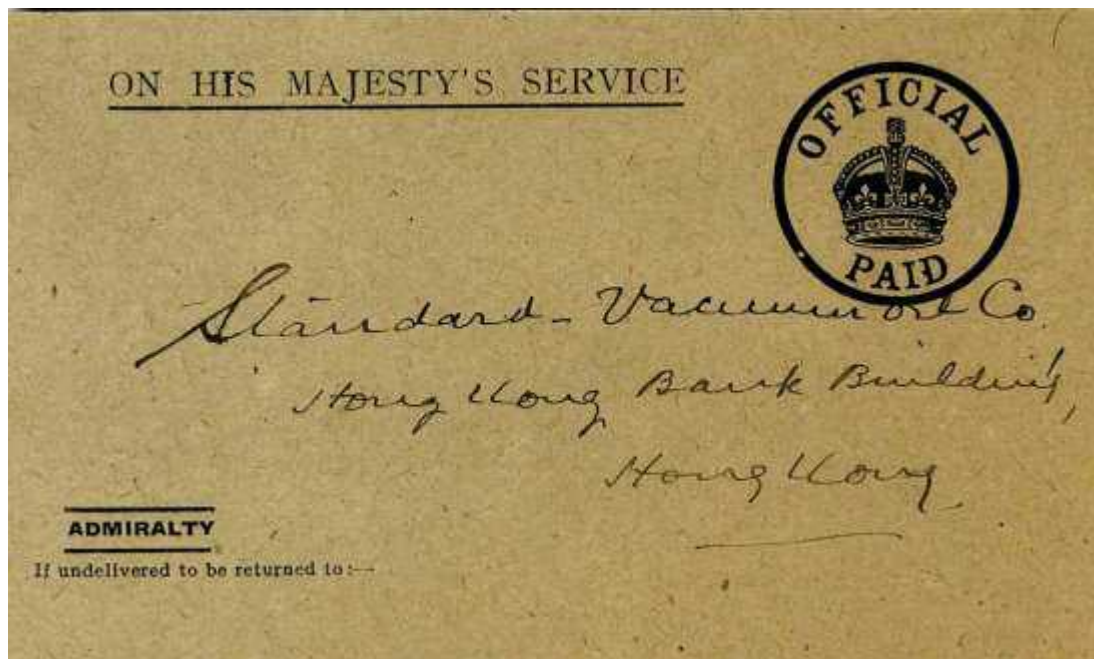 ON HIS MAJESTY'S SERVICE
OFFICIAL
PAID
Standard-Vacuum Oil Co.
Hong Kong Bank Building,
Hong Kong
ADMIRALTY
If undelivered to be returned to:—